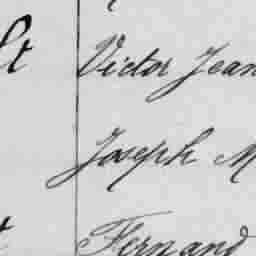 lt Victor Jean
Joseph M
Fernand